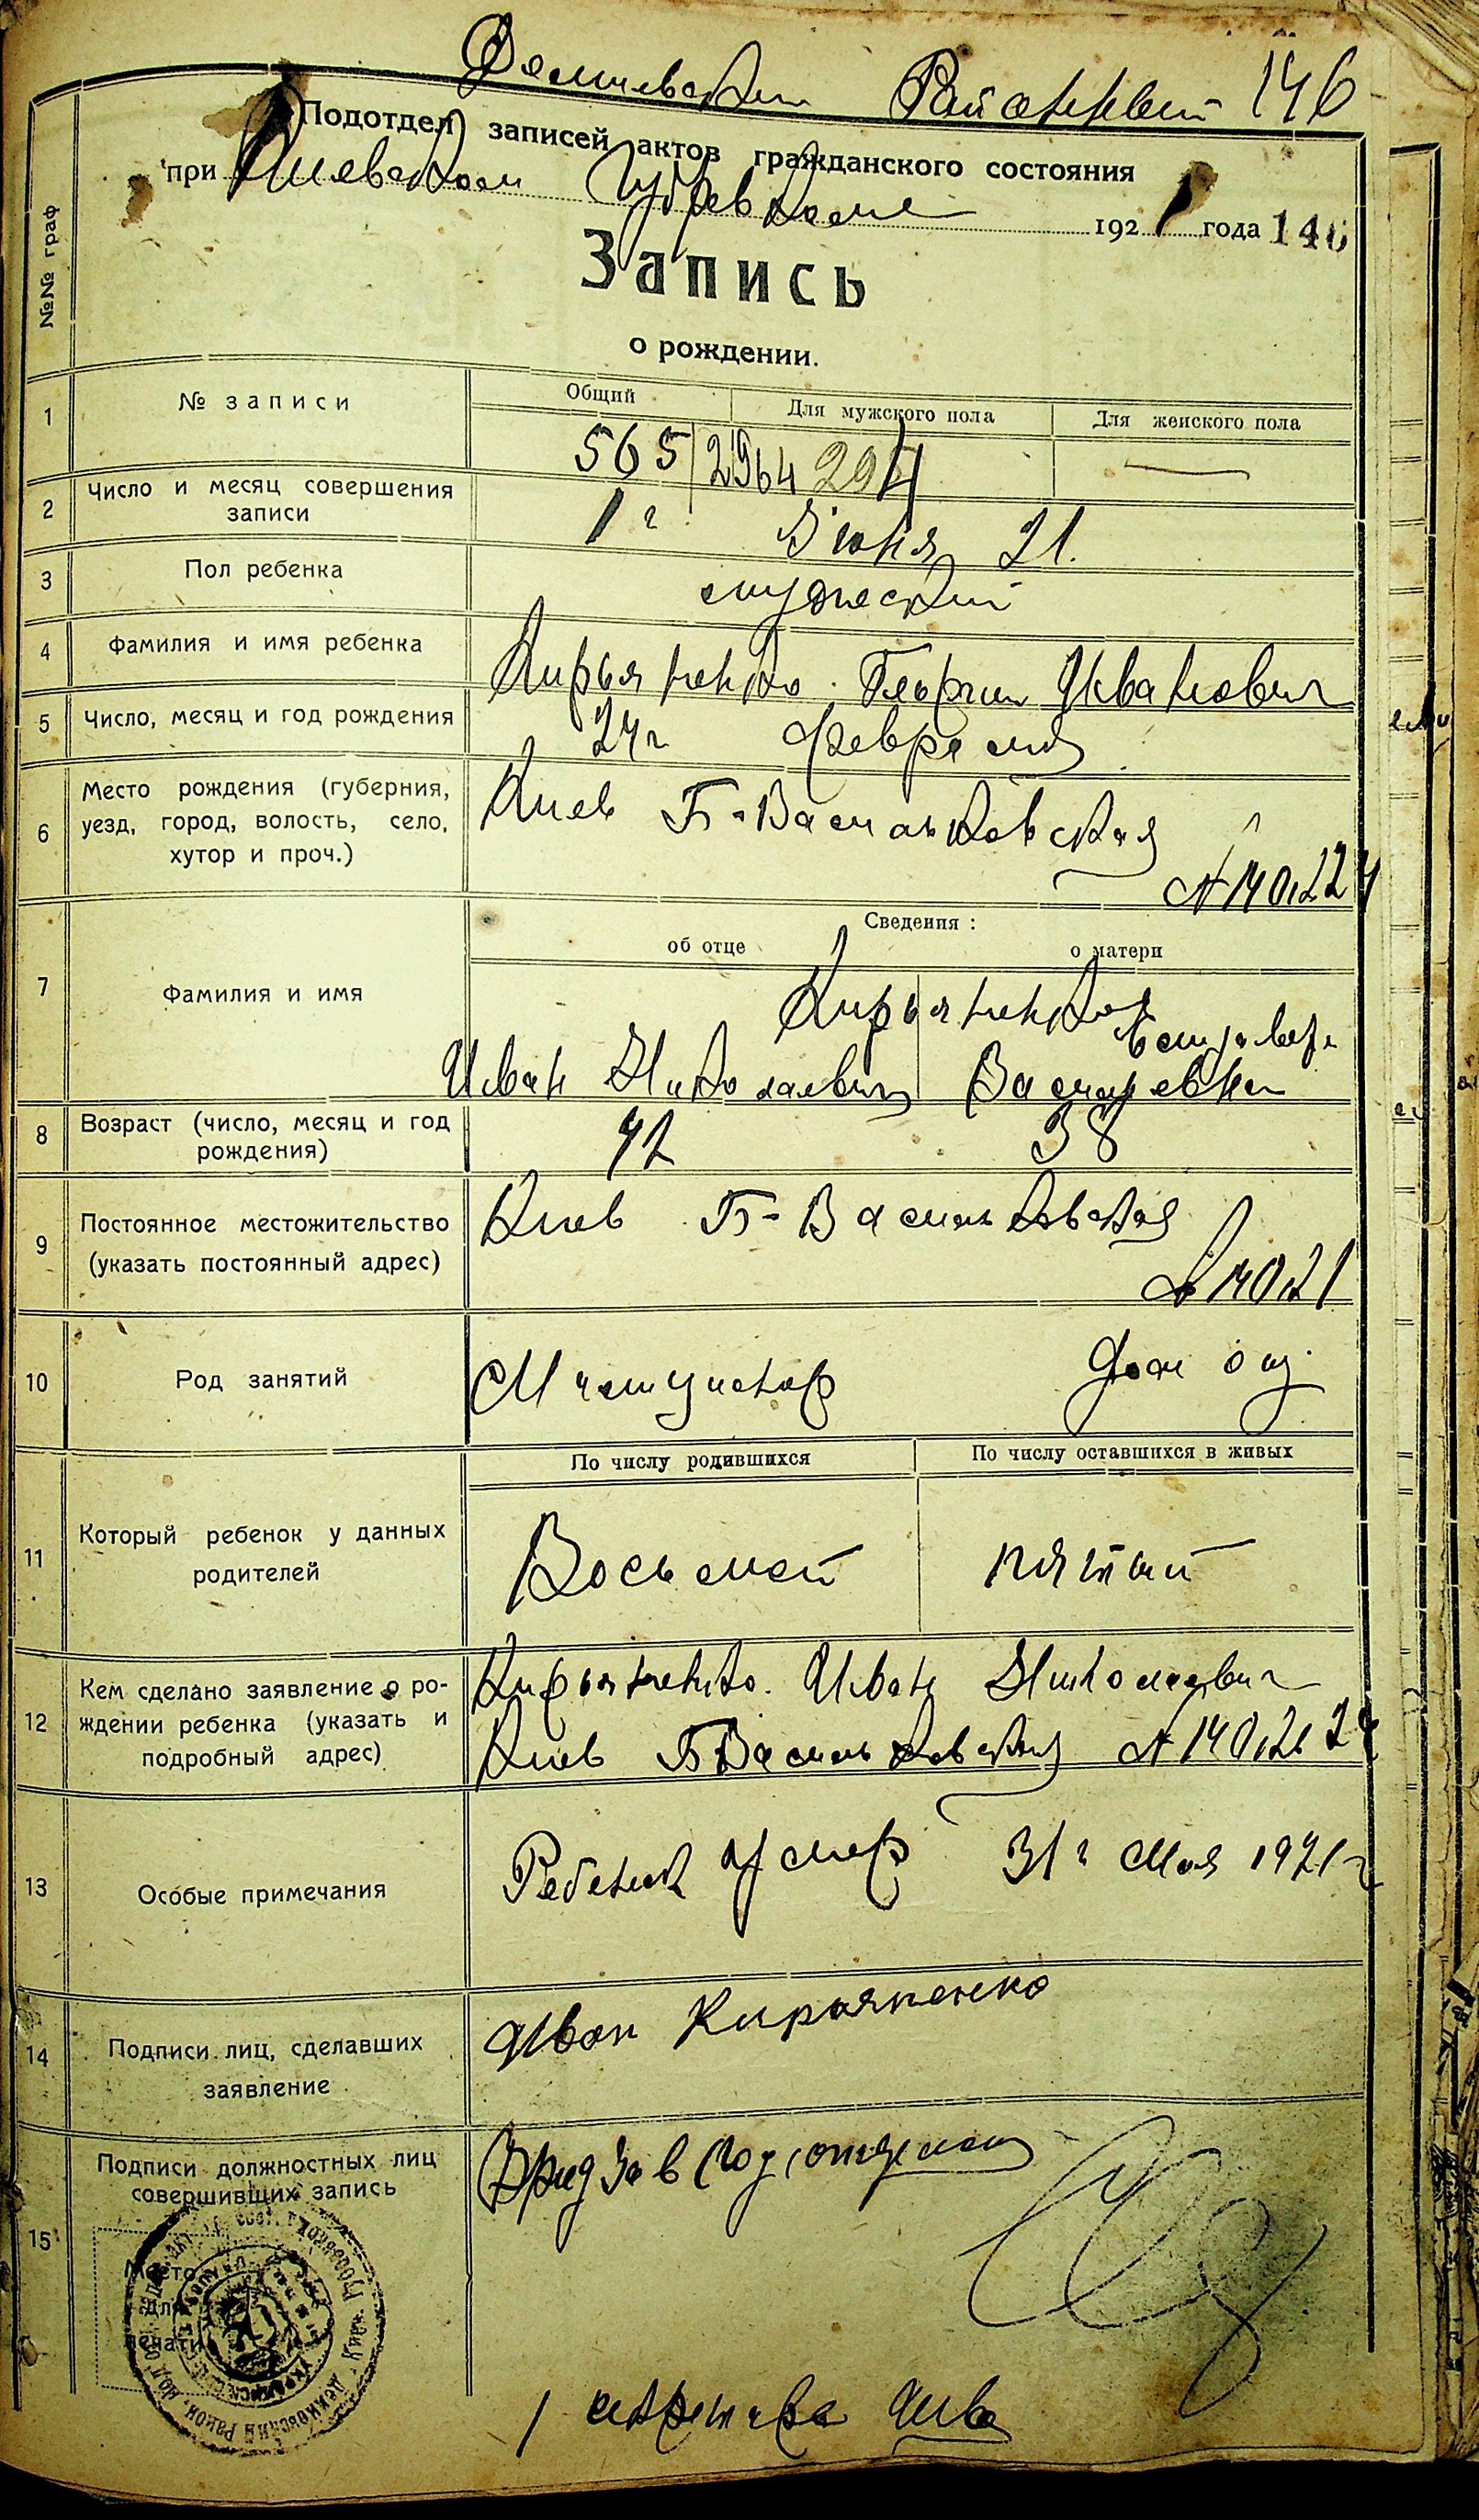 146
Подотдел записей актов гражданского состояния
при Киевском Губревкоме 1921 года 146
Запись
о рождении.
№№ граф
1 № записи Общий Для мужского пола Для женского пола
565 294 —
2 Число и месяц совершения
записи 1го Июня 21.
3 Пол ребенка мужеский
4 Фамилия и имя ребенка Кирьяненко Георгий Иванович
5 Число, месяц и год рождения 24го февраля
6 Место рождения (губерния,
уезд, город, волость, село,
хутор и проч.) Киев Б-Васильковская
Сведения:
об отце о матери
7 Фамилия и имя Кирьяненко
Иван Николаевич
8 Возраст (число, месяц и год
рождения) 42 38
9 Постоянное местожительство
(указать постоянный адрес) Киев Б-Васильковская
10 Род занятий
По числу родившихся По числу оставшихся в живых
11 Который ребенок у данных
родителей Восьмой пятый
12 Кем сделано заявление о ро-
ждении ребенка (указать и
подробный адрес) Кирьяненко Иван Николаевич
Киев Б Васильковская
13 Особые примечания Ребенок умер 31го Мая 1921г
14 Подписи лиц, сделавших
заявление Иван Кирьяненко
15 Подписи должностных лиц
совершивших запись Врид Зав подотделом
Место
для
печати